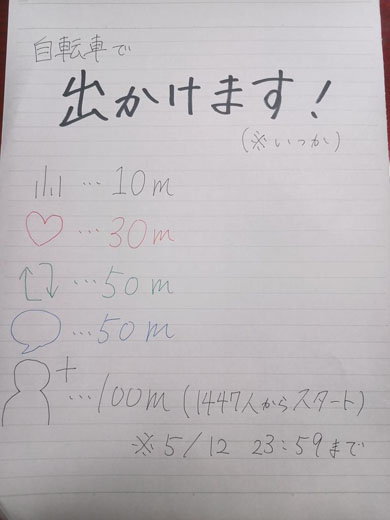 自転車で
出かけます!
(※いつか)
…10m
…30m
…50m
…50m
…100m (1447人からスタート)
※5/12 23:59まで